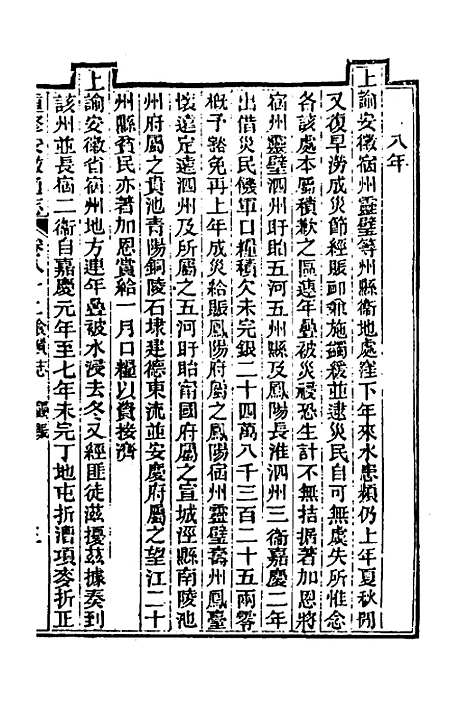 八年
上諭安徽宿州靈璧等州縣衛地處窪下年來水患頻仍上年夏秋間
又復旱澇成災節經賑卹兼施蠲緩並逮災民自可無虞失所惟念
各該處本屬積歉之區連年疊被災祲恐生計不無拮据著加恩將
宿州靈璧泗州盱眙五河五州縣及鳳陽長淮泗州三衛嘉慶二年
出借災民倭軍口糧積欠未完銀二十四萬八千三百二十五兩零
概予豁免再上年成災給賑鳳陽府屬之鳳陽宿州靈璧壽州鳳臺
懷遠定遠泗州及所屬之五河盱眙甯國府屬之宣城涇縣南陵池
州府屬之貴池青陽銅陵石埭建德東流並安慶府屬之望江二十
州縣貧民亦著加恩賞給一月口糧以資接濟
上諭安徽省宿州地方連年疊被水浸去冬又經匪徒滋擾茲據奏到
該州並長宿二衛自嘉慶元年至七年未完丁地屯折漕項麥折正
重修安徽通志 卷八十 食貨志 蠲賑 三